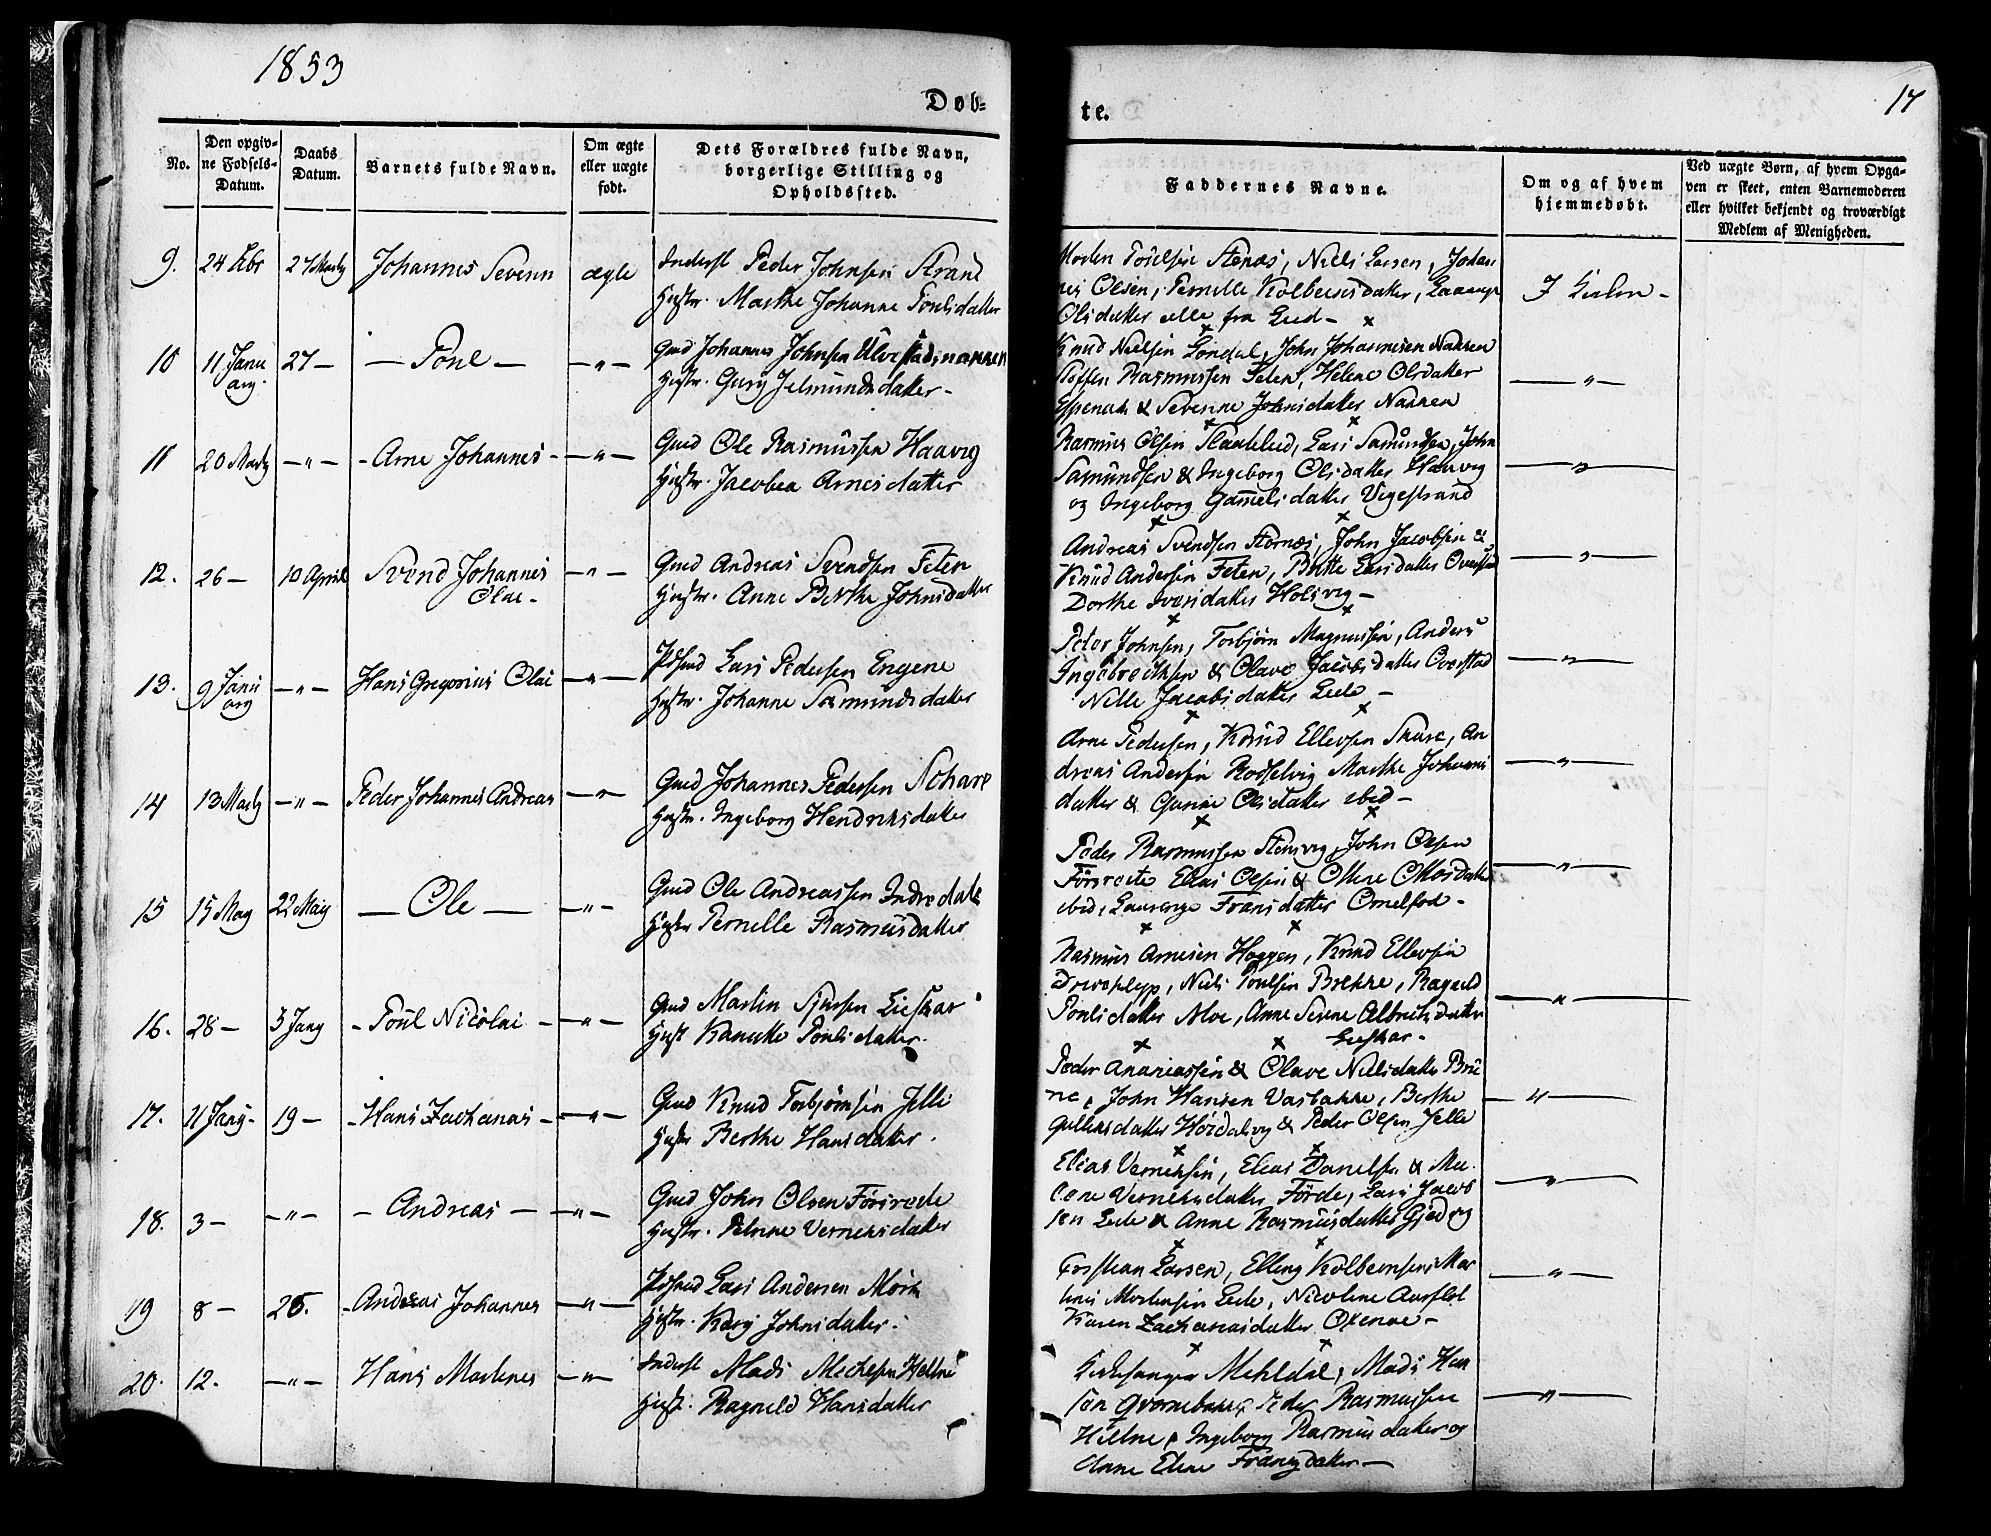 1853
17
Døb=
te.
No.
Den opgiv-
ne Fødsels-
Datum.
Daabs
Datum.
Barnets fulde Navn.
Om ægte
eller uægte
født.
Dets Forældres fulde Navn,
borgerlige Stilling og
Opholdssted.
Faddernes Navne.
Om og af hvem
hjemmedøbt.
Ved uægte Børn, af hvem Opga-
ven er skeet, enten Barnemoderen
eller hvilket bekjendt og troværdigt
Medlem af Menigheden.
9. 24 Xbr 27 Marts Johannes Severin ægte
Inderst Peder Johnsen Strand
Hustr. Marthe Johanne Poulsdatter
Morten Poulsen Stenæs, Niels Larsen, Johan
nes Olsen, Pernille Kolbeensdatter,
Olsdatter alle fra Eed -
I Kirken -
10 11 Janu 27 - - Poul - - " -
arg.
Gmd Johannes Johnsen Ulvestad, nannen
Hustr. Gurg Jetmundsdatter -
Knud Nielsen Londal, John Johannesen Nakken
Steffen Rasmussen Feten, Helene Olsdatter
Espenak & Severine Johnsdatter Nakken
- " -
11 20 Marts - " - - Arne Johannes - - " -
Gmd Ole Rasmussen Haavig
Hustr. Jacobea Arnesdatter
Rasmus Olsen Flaaelied, Lars Samundsen, John
Samundsen & Ingeborg Olsdatter Haavig
og Ingeborg Gamelsdatter Vigestrand
- " -
12. 26 - 10 April Svend Johannes - " -
Olai -
Gmd Andreas Svendsen Feten
Hustr. Anne Berthe Johnsdatter
Andreas Svendsen Stornæs, John Jacobsen &
Knud Andersen Feten, Birtte Larsdatter Overstad
Dorthe Iversdatter Holsvig -
- " -
13. 9 Janu - " - Hans Gregorius Olai - " -
arg
Lars Pedersen Engene
Hustr. Johanne Sæmundsdatter
Peter Johnsen, Torbjørn Magnussen, Anders
Ingebrecthsen & Olave Jacobsdatter Overstad
Nille Jacobsdatter Eede -
- " -
14 13 Marts - " - Peder Johannes Andreas - " -
Gmd Johannes Pedersen
Hustr. Ingeborg Hendriksdatter
Arne Pedersen, Knud Ellevsen Skare, An
dreas Andersen Rodselvig Marthe Johannes
datter & Gunne Olsdatter ibid -
- " -
15 15 May 22 May - Ole - - " -
Gmd Ole Andreassen Indredale
Hustr Pernelle Rasmusdatter
Peder Rasmussen Stensvig, John Olsen
Førsrede Elias Olsen & Oline Olsdatter
ibid, Laurenze Fransdatter Omelfod -
- " -
16. 28 - 3 Juny - Poul Nicolai - - " -
Gmd Martin Sjursen Lieskar
Hust Kanutte Poulsdatter.
Rasmus Arnesen Heggen, Knud Ellevsen
Drivaklep, Niels Poulsen Brekke, Ragneld
Poulsdatter Alve, Anne Serene Albretsdatter
Lieskar -
- " -
17. 11 Juny - 19 - - Hans Zacharias - - " -
Gmd Knud Torbjørnsen Jelle
Hustr Berthe Hansdatter.
Peder Ananiassen & Olave Nielsdatter Bru
ne, John Hansen Vasbakke, Berthe
Gullensdatter Hordalsvig & Peder Olsen Jelle
- " -
18. 3 - - " - - Andreas - - " -
Gmd John Olsen Førsrede
Hustr. Petrine Verneksdatter
Elias Verneksen, Elias Danielsen & Ma-
Verneksdatter Førde, Lars Jacob
sen Eede & Anne Rasmusdatter Gjedvig
- " -
19 8 - 26. - Andreas Johannes - " -
Lars Andersen Mork
Hustr. Kary Johnsdatter.
Larsen, Elling Kolbeensen, Mar
tines Mortensen Eede, Nicoline Aarflot
Karen Zachariasdatter Oxenæ -
- " -
20. 12. - " - Hans Martines - " -
Inderst Mads Mechelsen Heltne
Hustr. Ragneld Hansdatter
Kirkesanger Mehldal, Mads Han
sen Qvernebakke, Peder Rasmussen
Heltne, Ingeborg Rasmusdatter og
Anne Eline Fransdatter -
- " -